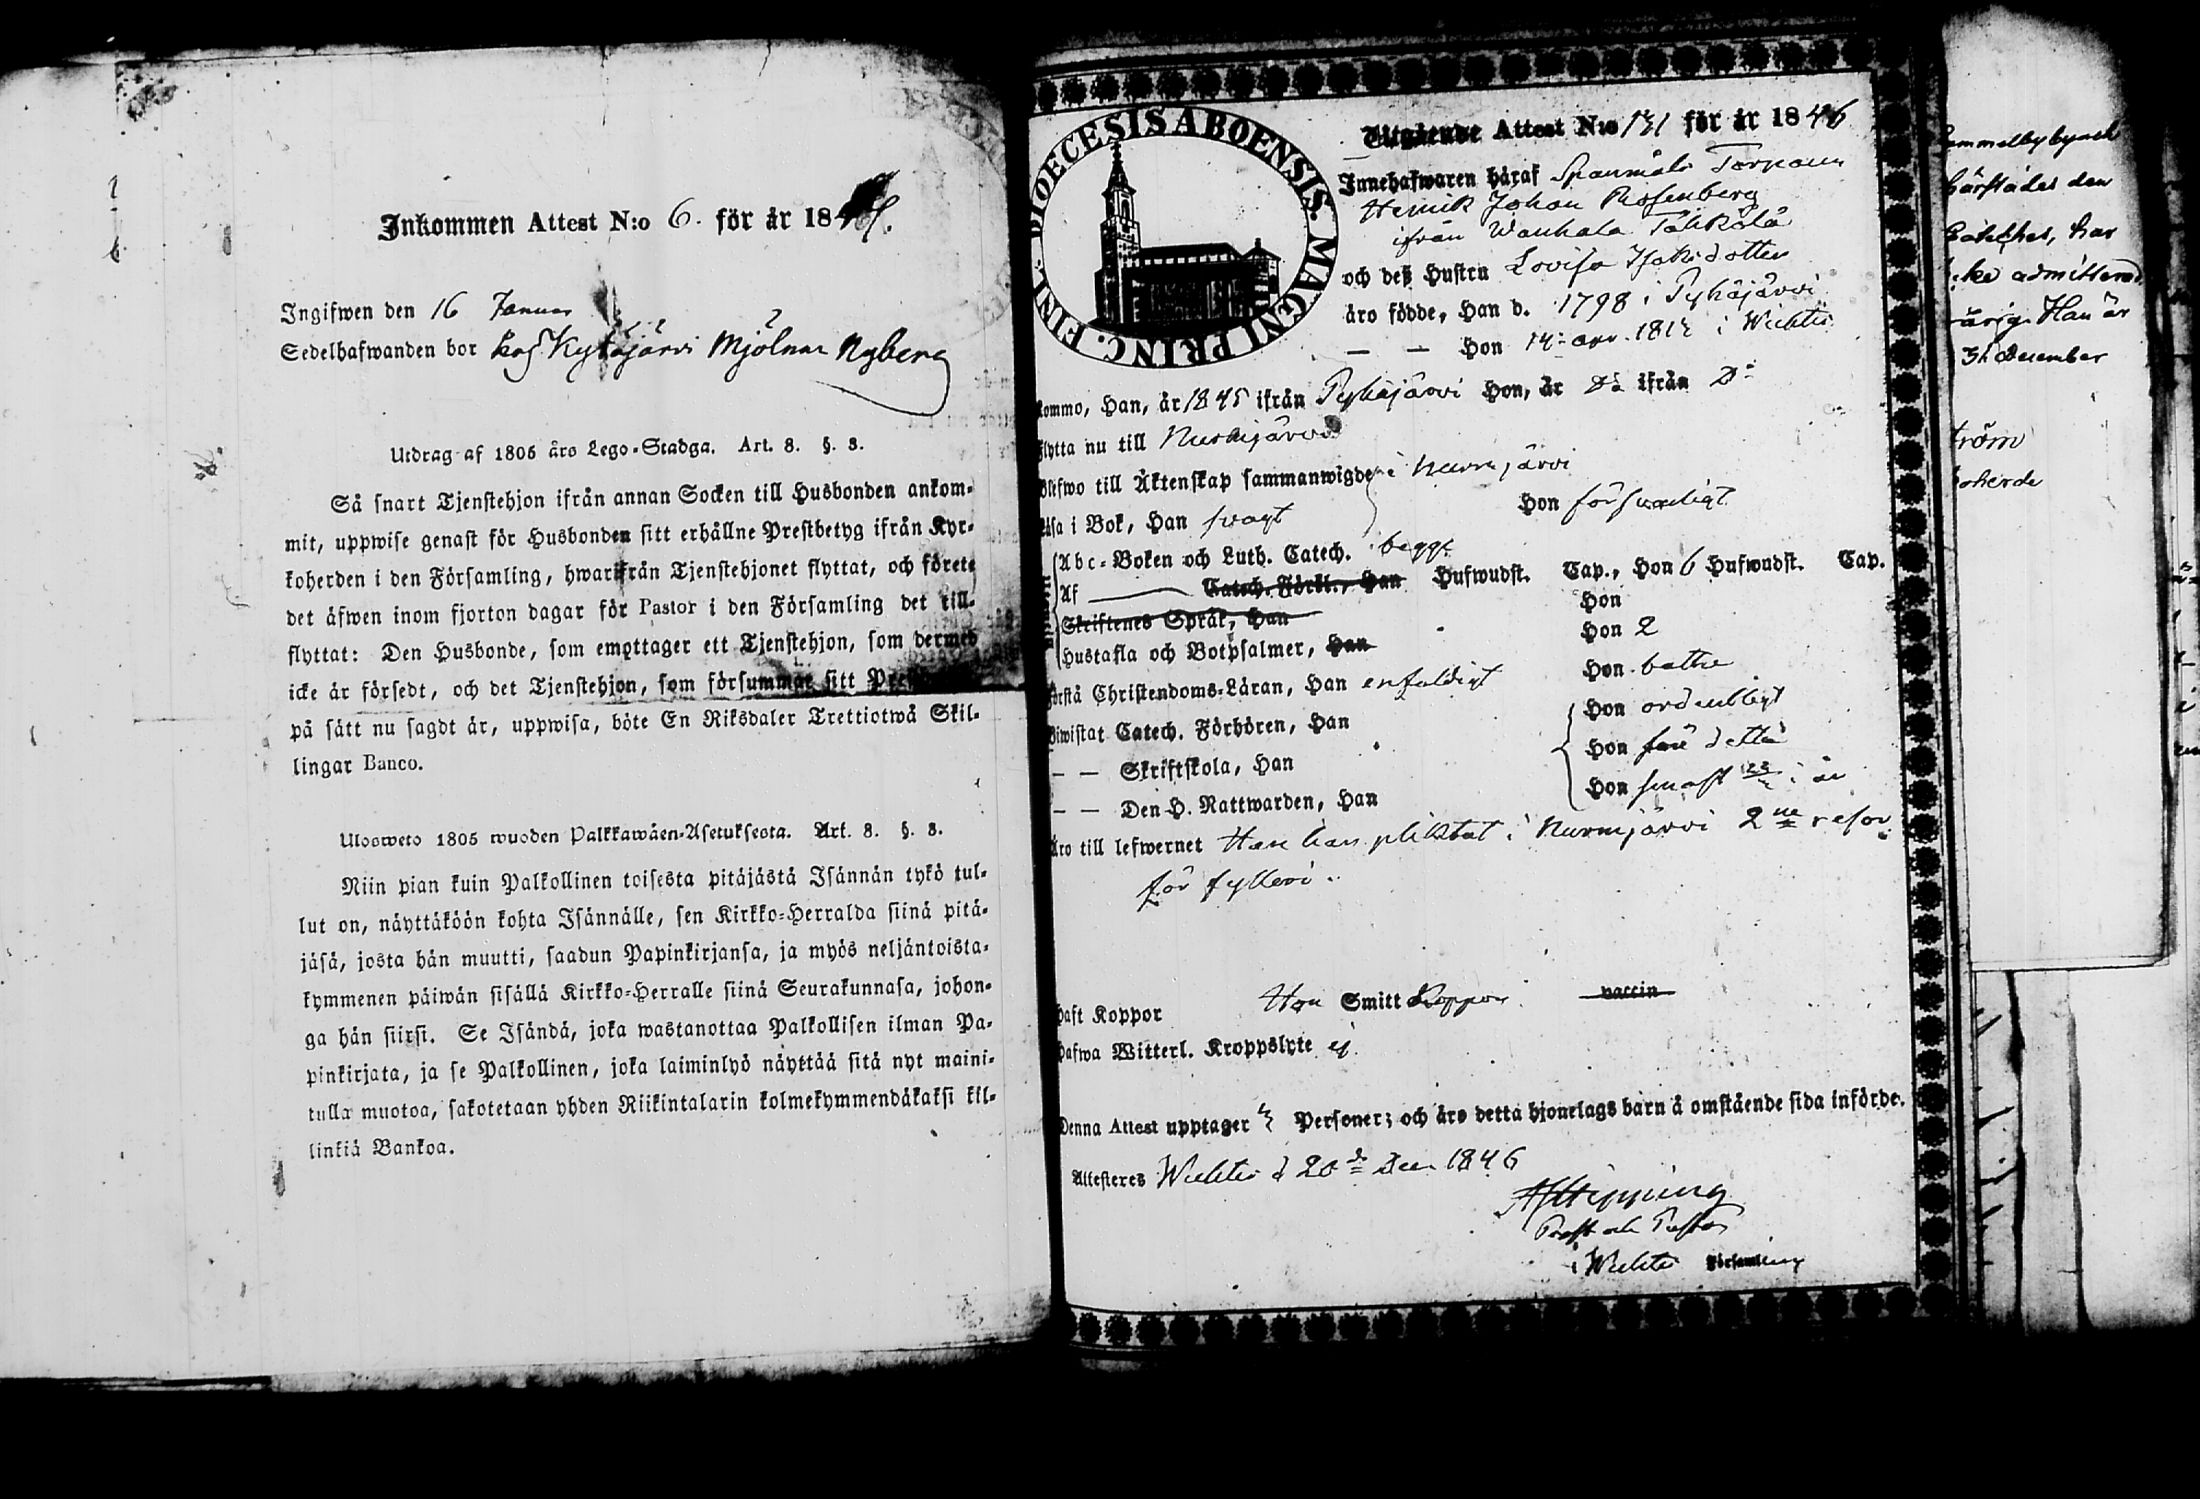 Inkommen Attest N:o 6. för år 184
Ingifwen den 16 Januar
Sedelhafwanden bor hos Kytäjärvi Mjölnar Nyberg
Utdrag af 1805 års Lego-Stadga. Art. 8. §. 8.
Så snart Tjenstehjon ifrån annan Socken till Husbonden ankom-
mit, uppwise genast för Husbonden sitt erhållne Prestbetyg ifrån Kyr-
koherden i den Församling, hwarifrån Tjenstehjonet flyttat, och förete
det äfwen inom fjorton dagar för Pastor i den Församling det till-
flyttat: Den Husbonde, som emottager ett Tjenstehjon, som dermed
icke är försedt, och det Tjenstehjon, som försummar sitt
på sätt nu sagdt är, uppwisa, böte En Riksdaler Trettiotwå Skil-
lingar Banco.
Ulosweto 1805 wuoden Palkkawäen-Asetuksesta. Art. 8. §. 8.
Niin pian kuin Palkollinen toisesta pitäjästä Isännän tykö tul-
lut on, näyttäköön kohta Isännälle, sen Kirkko-Herralda siinä pitä-
jäsä, josta hän muutti, saadun Papinkirjansa, ja myös neljäntoista-
kymmenen päiwän sisällä Kirkko-Herralle siinä Seurakunnasa, johon-
ga hän siirsi. Se Isändä, joka wastanottaa Palkollisen ilman Pa-
pinkirjata, ja se Palkollinen, joka laiminlyö näyttää sitä nyt maini-
tulla muotoa, sakotetaan yhden Riikintalarin kolmekymmendäkaksi kil-
linkiä Bankoa.
DIOECESIS ABOENSIS. MAGNI PRINC. FINL.
Utgående Attest N:o 131 för år 1846
Innehafwaren häraf Spanmåls Torparen
Henrik Johan Rosenberg
ifrån Wanhala
och deß Hustru Lovisa Isaksdotter
äro födde, Han d. 1798 i Pyhäjärvi
— — Hon 14 apr. 181 i Wichtis
kommo, Han, år 1845 ifrån Pyhäjärvi Hon, år Do ifrån Do
flytta nu till Nurmijärvi
Blifwo till Äktenskap sammanwigde i Nurmijärvi
Läsa i Bok, Han swagt Hon försvarligt
Abc-Boken och Luth. Catech. begge
Af — Catech. Förkl., Han Hufwudst. Cap., Hon 6 Hufwudst. Cap.
Skriftenes Språk, Han Hon
Hustafla och Botpsalmer, Han Hon 2
Förstå Christendoms-Läran, Han enfaldigt Hon bättre
Biwistat Catech. Förhören, Han Hon ordentligt
— — Skriftskola, Han Hon före detta
— — Den H. Nattwarden, Han Hon senast i år
Äro till lefwernet Han har pliktat i Nurmijärvi 2ne resor
för fylleri.
Haft Koppor Hon Smitt Koppor vaccin
Hafwa Witterl. Kroppslyte ej
Denna Attest upptager Personer; och äro detta hjonelags barn å omstående sida införde.
Attesteres Wichtis d 20 Dec 1846
Hipping
Prost och Pastor
i Wichtis Församling
härstädes den
har
icke admitterad
Han är
31 December
ström
koherde